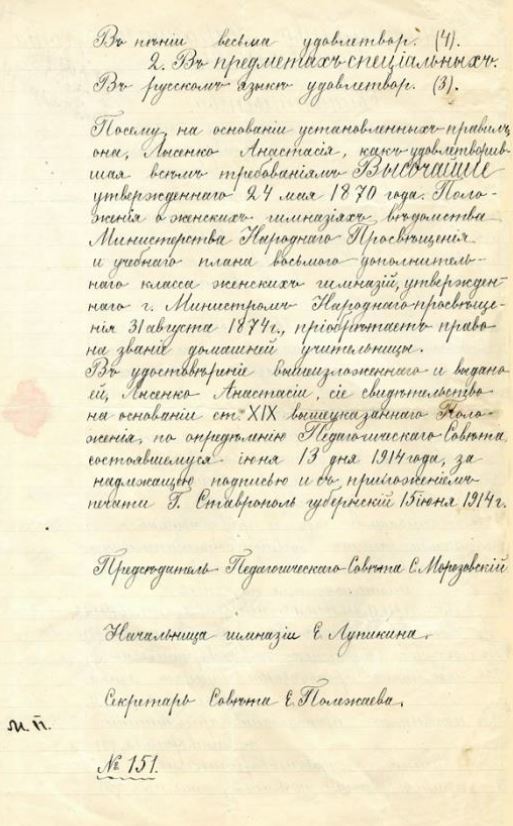 Въ пѣніи весьма удовлетвор. (4).
2. Въ предметахъ спеціальныхъ.
Въ русскомъ языкѣ удовлетвор. (3).
Посему, на основаніи установленныхъ правилъ,
она, Лысенко Анастасія, какъ удовлетворив-
шая всѣмъ требованіямъ Высочайше
утвержденнаго 24 мая 1870 года. Поло-
женія о женскихъ гимназіяхъ, вѣдомства
Министерства Народнаго Просвѣщенія
и учебнаго плана восьмого дополнитель-
наго класса женскихъ гимназій, утвержден-
наго г. Министромъ Народнаго просвѣще-
нія 31 августа 1874 г., пріобрѣтаетъ право
на званіе домашней учительницы.
Въ удостовѣреніе вышеизложеннаго и выдано
ей, Лысенко Анастасіи, сіе свидѣтельство
на основаніи ст. XIX вышеуказаннаго Поло-
женія, по опредѣленію Педагогическаго Совѣта,
состоявшемуся іюня 13 дня 1914 года, за
надлежащею подписью и съ приложеніемъ
печати Г. Ставрополь губернскій 15 іюня 1914 г.
Предсѣдатель Педагогическаго Совѣта С. Морозовскій
Начальница гимназіи Е. Лупикина.
Секретарь Совѣта Е. Полежаева.
М. П.
№ 151.